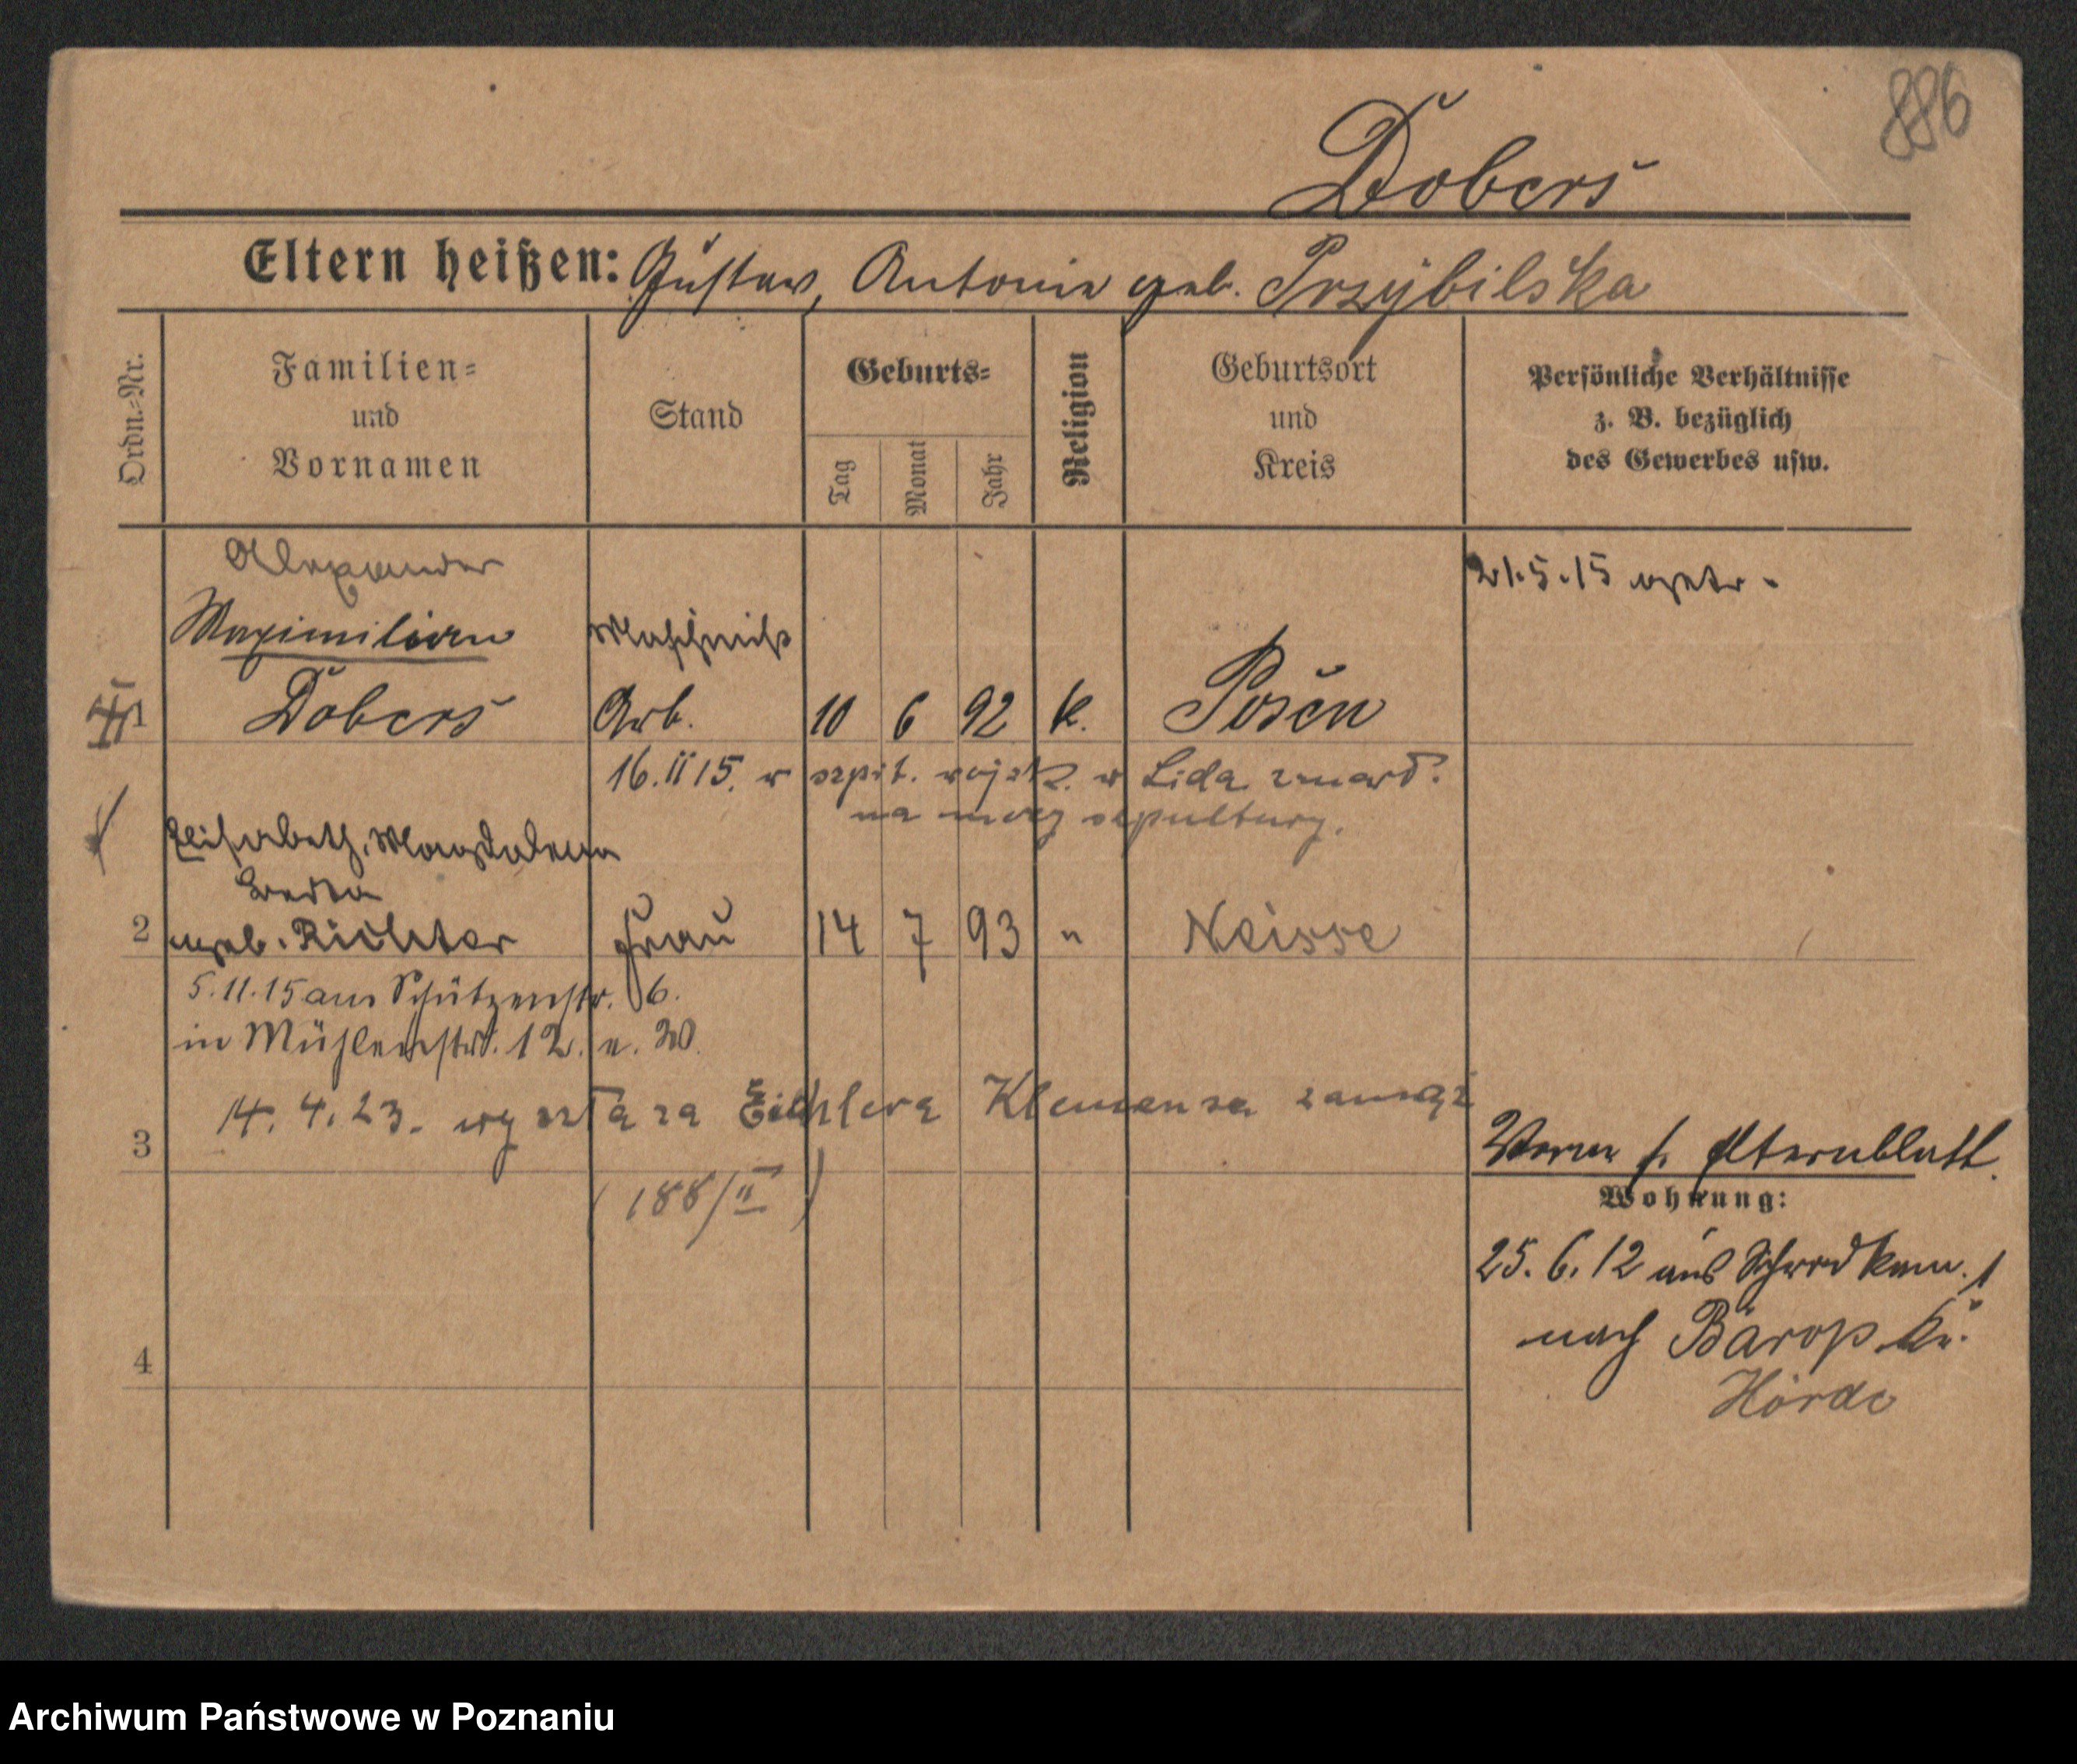 886
Dobers
Eltern heißen: Gustav, Antonie geb. Przybilska
Ordn.=Nr.
Familien=
und
Vornamen
Stand
Geburts=
Tag
Monat
Jahr
Religion
Geburtsort
und
Kreis
Persönliche Verhältnisse
z. B. bezüglich
des Gewerbes usw.
Alexander
21.5.15
Maximilian
Maschinist
1 Dobers Arb. 10 6 92 k. Posen
16.II 15. w szpit. wojsk. w Lida zmarł.
na mocy sepultury.
Elisabeth, Magdalena
2 geb. Richter Frau 14 7 93 " Neisse
5.11.15 aus Schützenstr. 6.
in Mühlenstr. 12. n. W.
14. 4. 23. wyszła za Eichlera Klemensa zamąż
3
(188/II)
Vorm s. Elternblatt.
Wohnung:
25. 6. 12 aus
nach Barop Kr.
Hörde
4
Archiwum Państwowe w Poznaniu